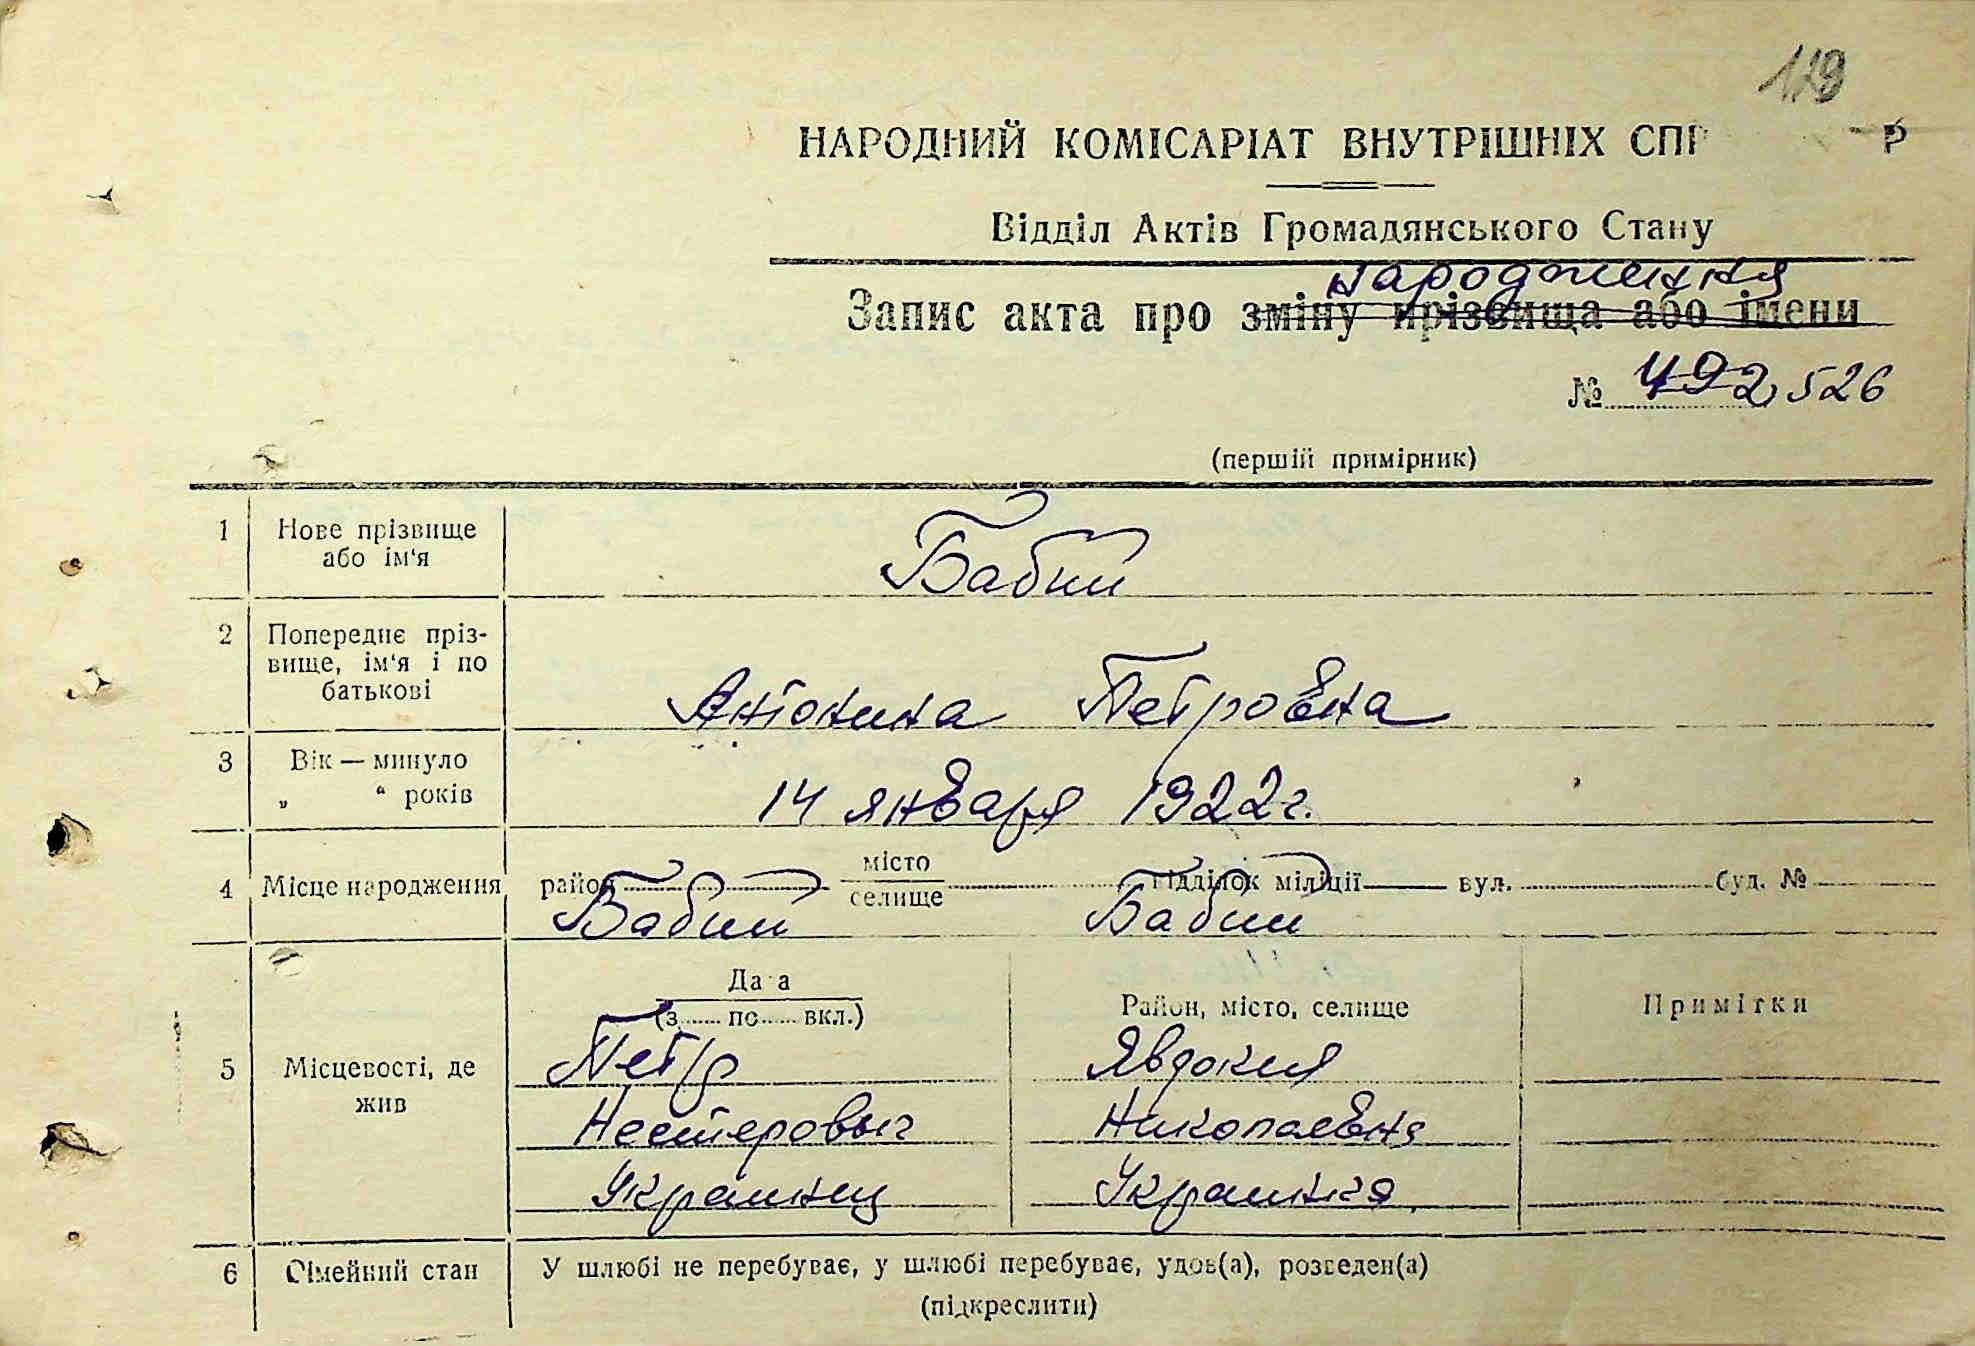 119
НАРОДНИЙ КОМІСАРІАТ ВНУТРІШНІХ СПР Р
Відділ Актів Громадянського Стану
народження
Запис акта про зміну прізвища або імени
№ 492, 526
(першій примірник)
1 Нове прізвище або ім'я Бабий
2 Попереднє пріз-
вище, ім'я і по
батькові
Антонина Петровна
3 Вік — минуло
„ “ років
14 января 1922 г.
4 Місце народження район місто селище відділок міліції вул. буд. №
Бабий Бабий
5 Місцевості, де
жив
Да а
(з по вкл.)
Район, місто, селище
Примітки
Петр Явдокия
Нестерович Николаевна
Украинец Украинка
6 Сімейний стан У шлюбі не перебуває, у шлюбі перебуває, удов(а), розведен(а)
(підкреслити)